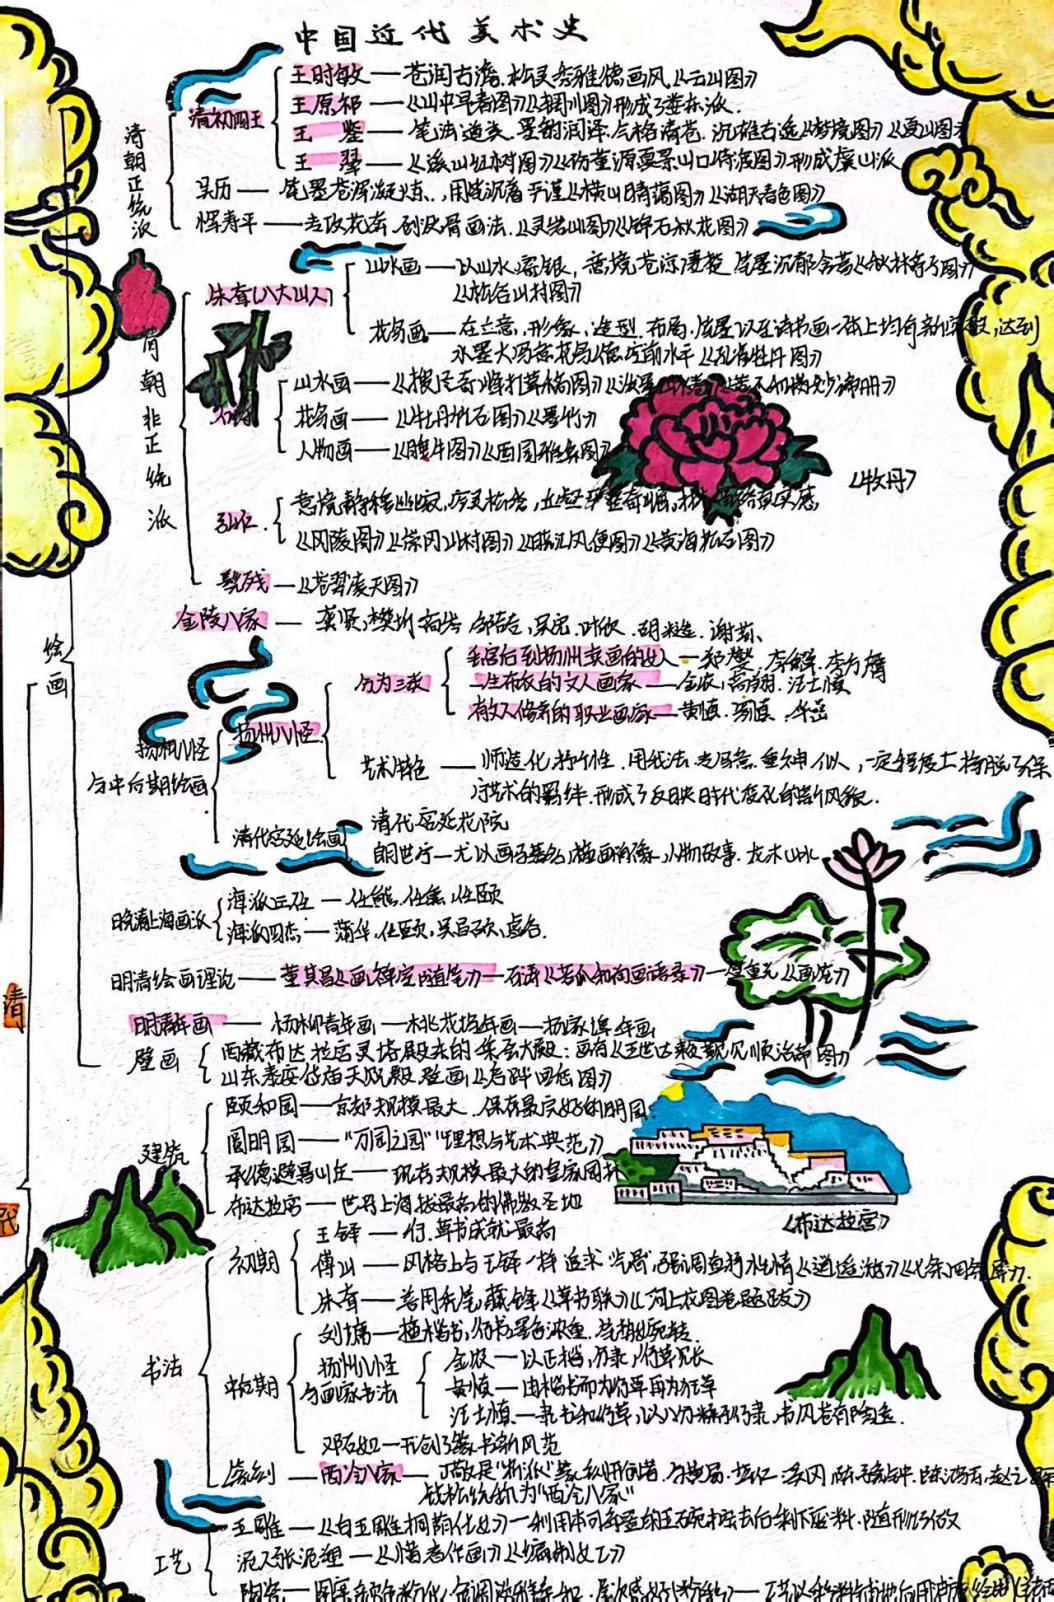 中国近代美术史
清朝正统派
清初四王
王时敏——苍润古澹、松灵秀雅德画风《云山图》
王原祁——《山中早春图》《辋川图》形成了娄东派.
王 鉴——笔法遒炎 墨韵润泽 沉雄古逸《梦境图》《夏山图》
王 翚——《溪山红树图》《仿董源夏景山口待渡图》形成虞山派
吴历——笔墨苍浑凝炼 用笔沉着平谨《横山晴霭图》《湖天春色图》
恽寿平——去改花卉 创没骨画法《灵岩山图》《锦石秋花图》
清朝非正统派
朱耷(八大山人)
山水画——以山水寄恨, 意境苍凉凄楚 笔墨沉郁含蓄《秋林亭子图》
《松谷山村图》
花鸟画——在立意、形象、造型、布局、笔墨以至诗书画一体上均有新突破,达到
水墨大写意花鸟德空前水平《孔雀牡丹图》
石涛
山水画——《搜尽奇峰打草稿图》
花鸟画——《牡丹竹石图》《墨竹》
人物画——《腹牛图》《西园雅集图》
《牧丹》
弘仁
意境静穆幽寂, 丘壑
《冈陵图》《崇冈山村图》《晓江风便图》《黄海松石图》
髡残——《苍翠凌天图》
金陵八家——龚贤、樊圻 高岑 邹喆、吴宏、叶欣 胡慥 谢荪、
绘画
扬州八怪与中后期绘画
扬州八怪
分为三张
丢官后到扬州卖画的文人——郑燮、李鱓、李方膺
一生布衣的文人画家——金农、高翔、汪士慎
有文人修养的职业画家——黄慎 华嵒
艺术特色——师造化 抒个性 用我法 去写意 重神似,一定程度上摆脱了保
守艺术的羁绊 形成了反映时代变化的新风貌.
清代宫廷绘画
清代宫廷花院
郎世宁—尤以画马著名,擅画肖像、人物故事、花木山水
晚清上海画派
海派三任——任熊、任薰、任颐
海派四杰——蒲华、任颐、吴昌硕、虚谷.
明清绘画理论——董其昌《画禅室随笔》—石涛《苦瓜和尚画语录》—笪重光《画筌》
明清年画——杨柳青年画—桃花坞年画—杨家埠年画
壁画
西藏布达拉宫灵塔殿东的集会大殿：画有《五世达赖觐见顺治帝图》
山东泰安岱庙天贶殿壁画《启跸回銮图》
清代
建筑
颐和园——京都规模最大、保存最完好的明园
圆明园——“万园之园”“理想与艺术典范》
承德避暑山庄——现存规模最大的皇家园林
布达拉宫——世界上海拔最高的佛教圣地
《布达拉宫》
书法
初期
王铎——行、草书成就最高
傅山——风格上与王铎一样追求 强调直抒心情《逍遥游》
朱耷——善用秃笔, 藏锋《草书联》《河上花图卷题跋》
中期
刘墉——擅楷书,行书墨色浓重
扬州八怪与画家书法
金农——以正楷、行隶、行草见长
黄慎——由楷书而为行草再为狂草
汪士慎——隶书和行草
邓石如—开创了篆书新风范
篆刻——西泠八家——丁敬是“浙派”篆刻开创者, 与黄易 奚冈
钱松统称为“西泠八家”
工艺
玉雕——《白玉雕桐荫仕女》
泥人张泥塑——《惜春作画》《编制女工》